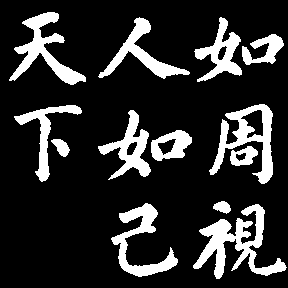 如周視
人如己
天下